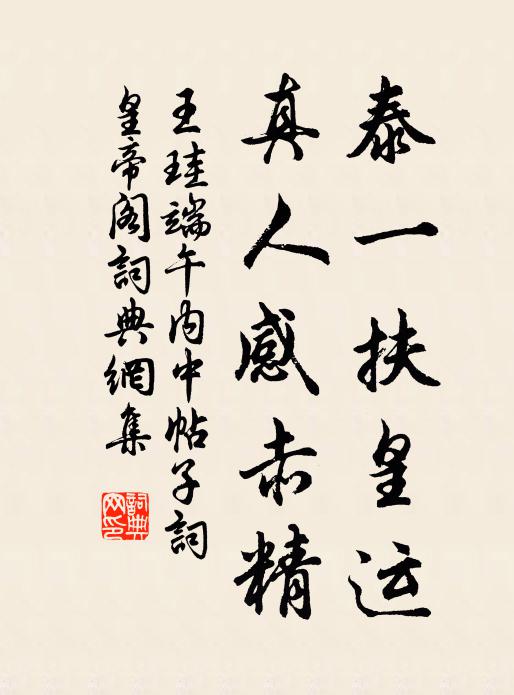 泰一扶皇运
真人感赤精
王珪端午内中帖子詞
皇帝阁詞典網集
詞典網印